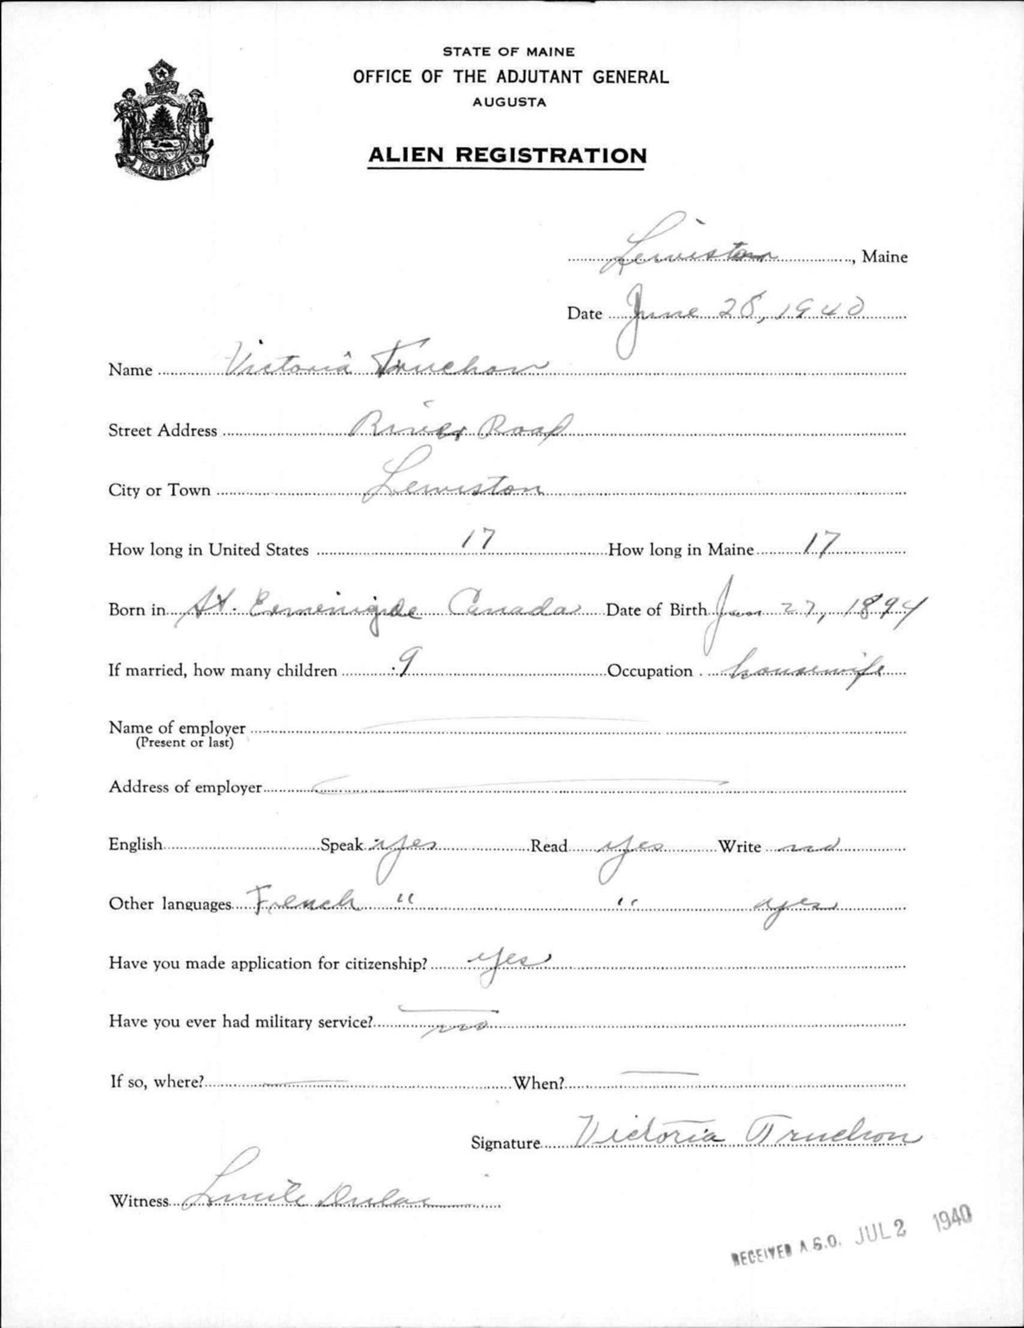 STATE OF MAINE
OFFICE OF THE ADJUTANT GENERAL
AUGUSTA
ALIEN REGISTRATION
MAINE
Lewiston, Maine
Date June 28, 1940
Name Victoria Truchon
Street Address River Road
City or Town Lewiston
How long in United States 17 How long in Maine 17
Born in St. Ermenigilde Canada Date of Birth Jan 27, 1894
If married, how many children 9 Occupation housewife
Name of employer
(Present or last)
Address of employer
English Speak yes Read yes Write no
Other languages French " " yes
Have you made application for citizenship? yes
Have you ever had military service? no
If so, where? When?
Signature Victoria Truchon
Witness Lucile Dulac
RECEIVED A.G.O. JUL 2 1940